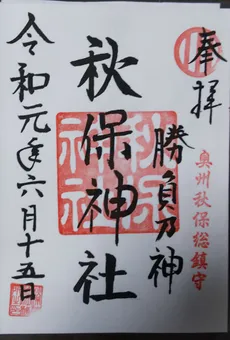 奉拝
奥州秋保総鎮守
勝負乃神
秋保神社
令和元年六月十五日